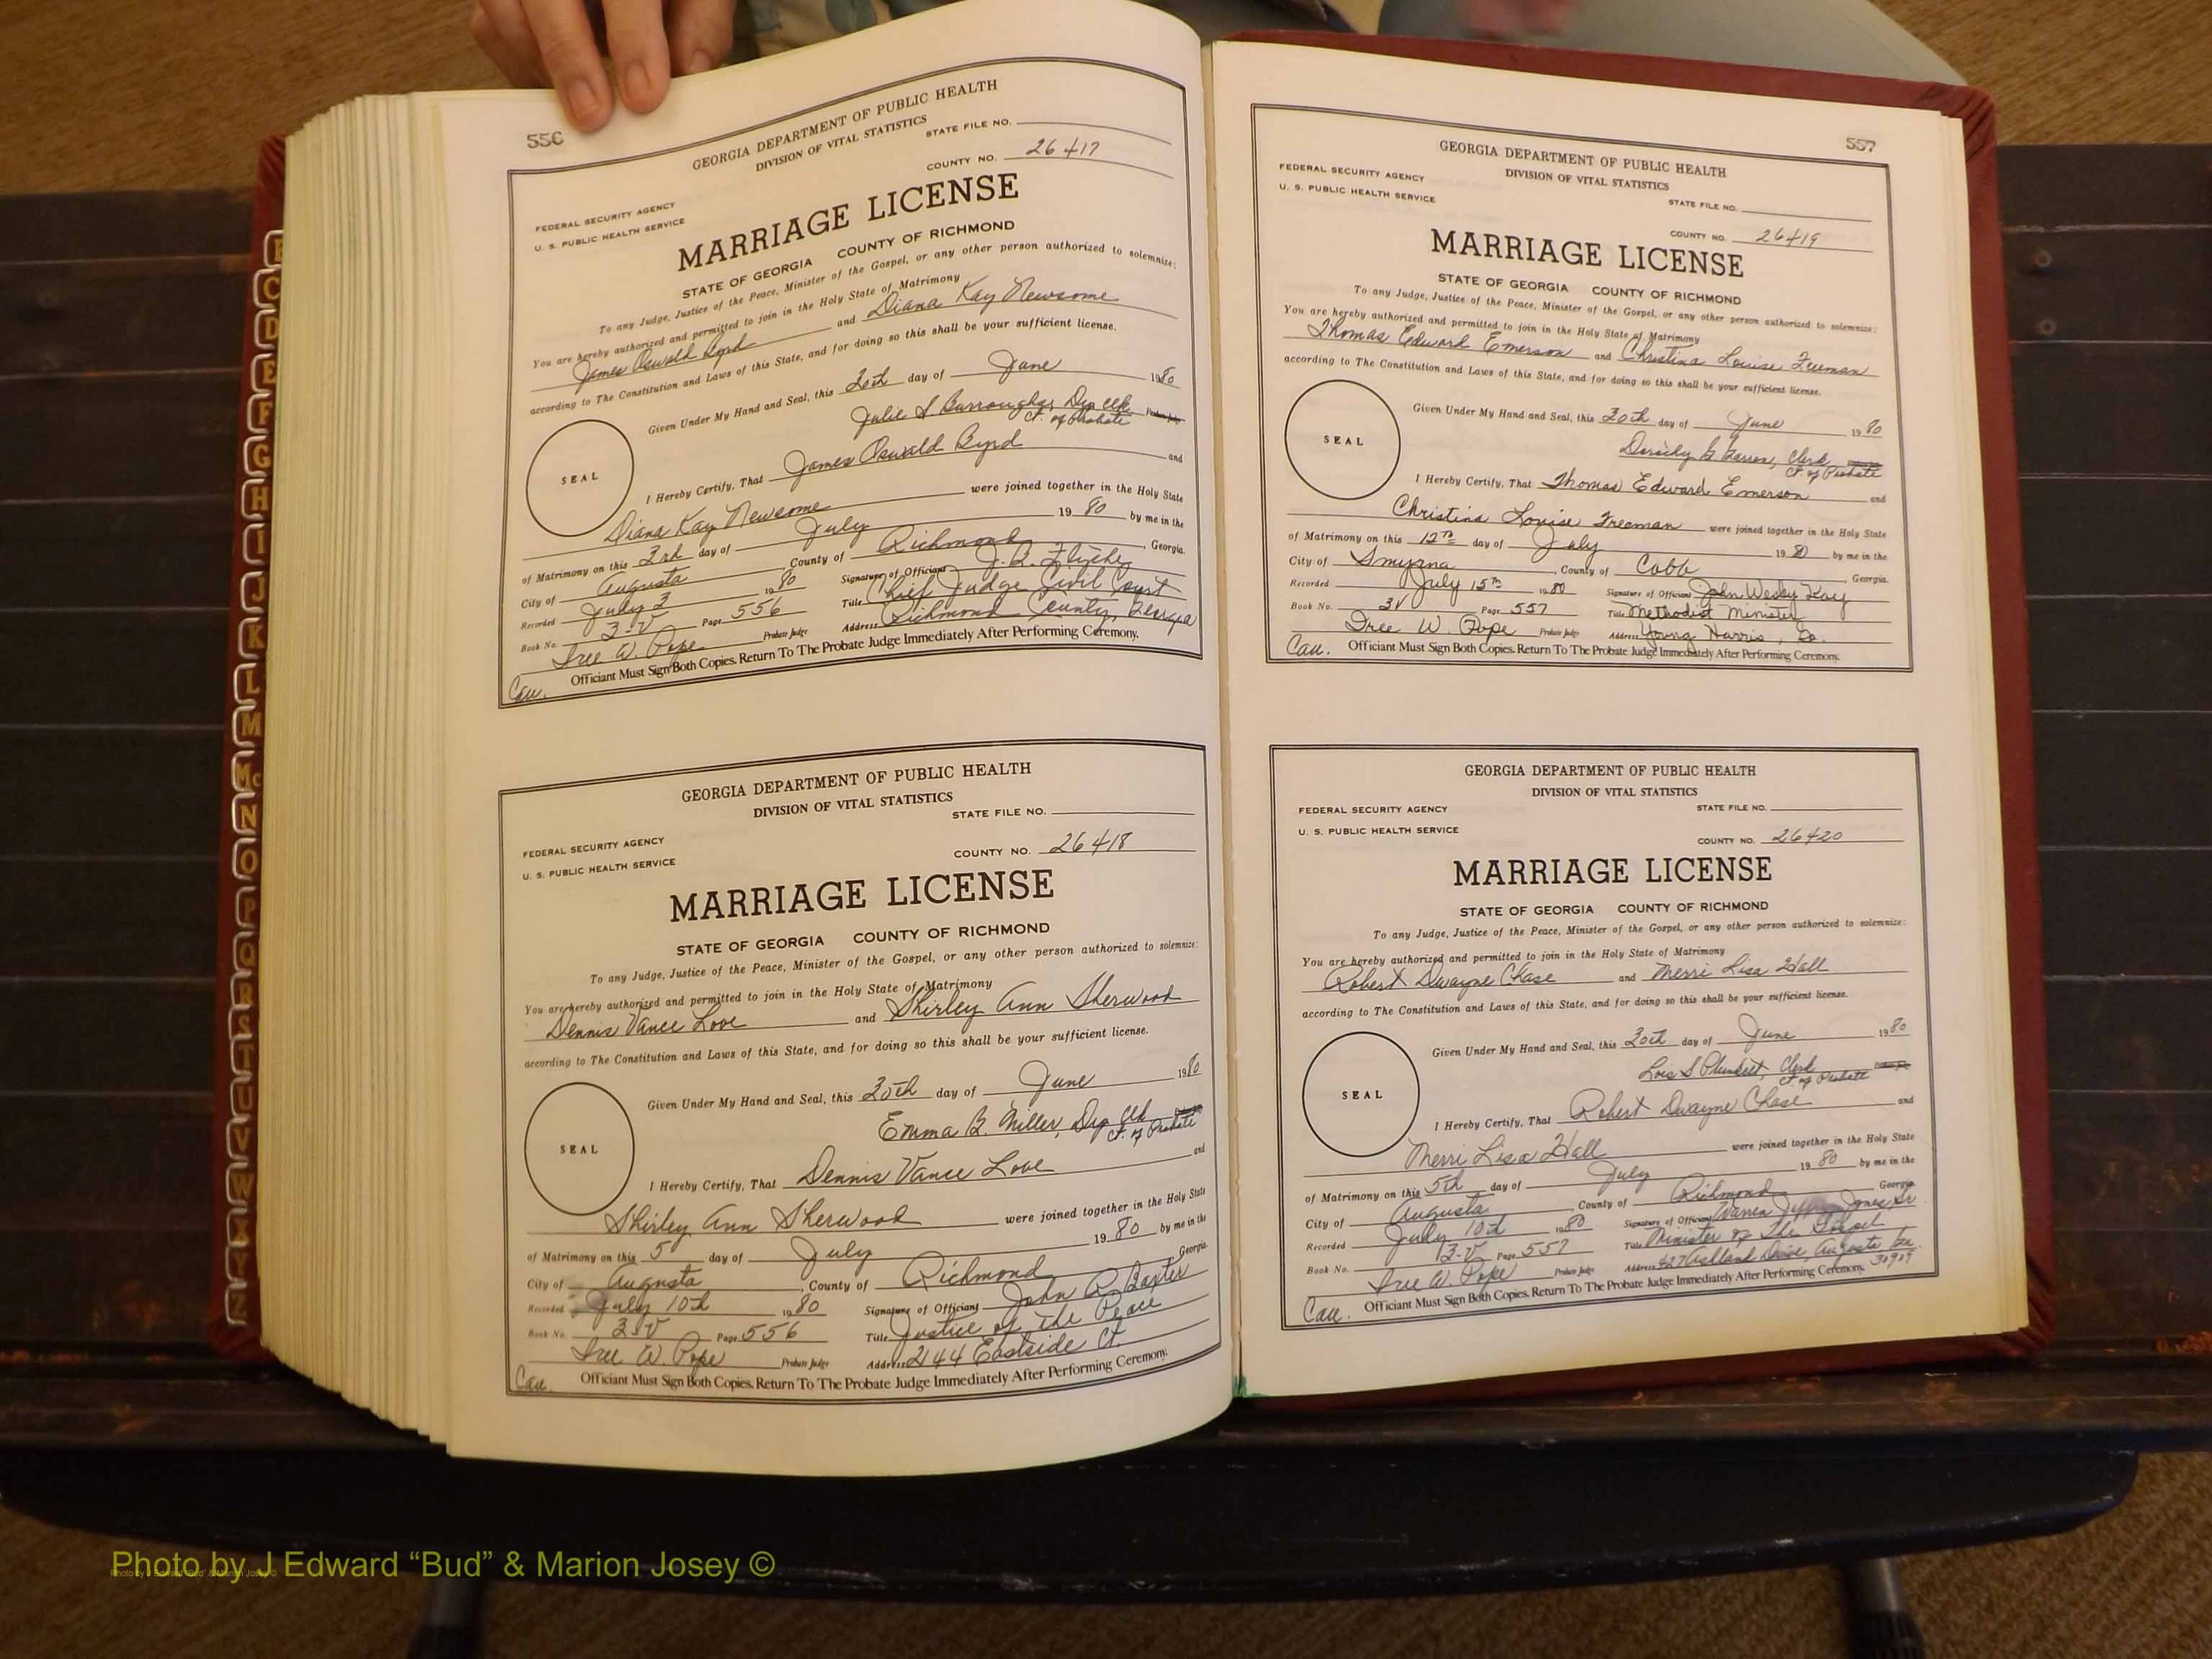 556
GEORGIA DEPARTMENT OF PUBLIC HEALTH
DIVISION OF VITAL STATISTICS
STATE FILE NO.
COUNTY NO. 26417
FEDERAL SECURITY AGENCY
U. S. PUBLIC HEALTH SERVICE
MARRIAGE LICENSE
STATE OF GEORGIA COUNTY OF RICHMOND
To any Judge, Justice of the Peace, Minister of the Gospel, or any other person authorized to solemnize:
You are hereby authorized and permitted to join in the Holy State of Matrimony
James Oswald Byrd and Diana Kay Newsome
according to The Constitution and Laws of this State, and for doing so this shall be your sufficient license.
Given Under My Hand and Seal, this 30th day of June 1980
Julie S. Burroughs, Dep clk
Ct. of Probate
SEAL
I Hereby Certify, That James Oswald Byrd and
Diana Kay Newsome were joined together in the Holy State
of Matrimony on this 3rd day of July 19 80 by me in the
City of Augusta, County of Richmond, Georgia.
Recorded July 3 19 80 Signature of Officiant J. B.
Book No. 3-V Page 556 Title Chief Judge Civil Court
Address Richmond County, Georgia
Iree W. Pope Probate Judge
Officiant Must Sign Both Copies. Return To The Probate Judge Immediately After Performing Ceremony.
Cau.
GEORGIA DEPARTMENT OF PUBLIC HEALTH
DIVISION OF VITAL STATISTICS
STATE FILE NO.
FEDERAL SECURITY AGENCY
COUNTY NO. 26418
U. S. PUBLIC HEALTH SERVICE
MARRIAGE LICENSE
STATE OF GEORGIA COUNTY OF RICHMOND
To any Judge, Justice of the Peace, Minister of the Gospel, or any other person authorized to solemnize:
You are hereby authorized and permitted to join in the Holy State of Matrimony
Dennis Vance Love and Shirley Ann Sherwood
according to The Constitution and Laws of this State, and for doing so this shall be your sufficient license.
Given Under My Hand and Seal, this 30th day of June 1980
Emma B. Miller, Dep Clk
Ct. of Probate
SEAL
I Hereby Certify, That Dennis Vance Love and
Shirley Ann Sherwood were joined together in the Holy State
of Matrimony on this 5 day of July 19 80 by me in the
City of Augusta, County of Richmond Georgia.
Recorded July 10th 19 80 Signature of Officiant John R. Baxter
Book No. 3-V Page 556 Title Justice of the Peace
Iree W. Pope Probate Judge Address 2144 Eastside Ct.
Officiant Must Sign Both Copies. Return To The Probate Judge Immediately After Performing Ceremony.
Cau.
557
GEORGIA DEPARTMENT OF PUBLIC HEALTH
DIVISION OF VITAL STATISTICS
FEDERAL SECURITY AGENCY
U. S. PUBLIC HEALTH SERVICE
STATE FILE NO.
COUNTY NO. 26419
MARRIAGE LICENSE
STATE OF GEORGIA COUNTY OF RICHMOND
To any Judge, Justice of the Peace, Minister of the Gospel, or any other person authorized to solemnize:
You are hereby authorized and permitted to join in the Holy State of Matrimony
Thomas Edward Emerson and Christina Louise Freeman
according to The Constitution and Laws of this State, and for doing so this shall be your sufficient license.
Given Under My Hand and Seal, this 30th day of June 19 80
Clerk,
Ct. of Probate
SEAL
I Hereby Certify, That Thomas Edward Emerson and
Christina Louise Freeman were joined together in the Holy State
of Matrimony on this 12th day of July 19 80 by me in the
City of Smyrna, County of Cobb Georgia.
Recorded July 15th 19 80 Signature of Officiant John Wesley Kay
Book No. 3V Page 557 Title Methodist Minister
Iree W. Pope Probate Judge Address Young Harris, Ga.
Cau. Officiant Must Sign Both Copies. Return To The Probate Judge Immediately After Performing Ceremony.
GEORGIA DEPARTMENT OF PUBLIC HEALTH
DIVISION OF VITAL STATISTICS
FEDERAL SECURITY AGENCY
STATE FILE NO.
U. S. PUBLIC HEALTH SERVICE
COUNTY NO. 26420
MARRIAGE LICENSE
STATE OF GEORGIA COUNTY OF RICHMOND
To any Judge, Justice of the Peace, Minister of the Gospel, or any other person authorized to solemnize:
You are hereby authorized and permitted to join in the Holy State of Matrimony
Robert Dwayne Chase and Merri Lisa Hall
according to The Constitution and Laws of this State, and for doing so this shall be your sufficient license.
Given Under My Hand and Seal, this 30th day of June 1980
Lois S Plunkett, Clerk
Ct. of Probate
SEAL
I Hereby Certify, That Robert Dwayne Chase and
Merri Lisa Hall were joined together in the Holy State
of Matrimony on this 5th day of July 19 80 by me in the
City of Augusta County of Richmond Georgia
Recorded July 10th 19 80 Signature of Officiant Warren Jones Sr
Book No. 3-V Page 557 Title Minister of The Gospel
Iree W. Pope Probate Judge Address 427 Ashland Drive Augusta Ga 30909
Officiant Must Sign Both Copies. Return To The Probate Judge Immediately After Performing Ceremony.
Cau.
C
D
E
F
G
H
I
J
K
L
M
Mc
N
O
P
Q
R
S
T
U
V
W
X
Y
Z
Photo by J Edward “Bud” & Marion Josey ©